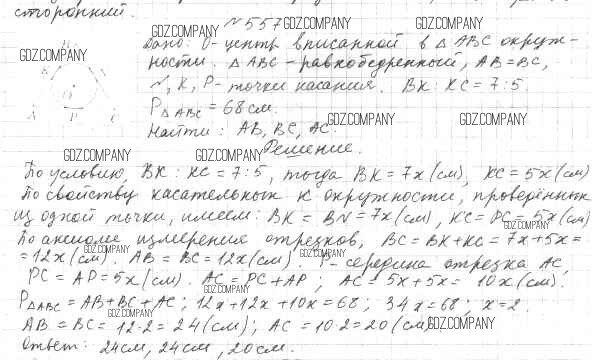 сторонний.
№ 557
Дано: О- центр вписанной в △ABC окруж-
ности. △ABC - равнобедренный, AB=BC,
N, K, P- точки касания. BK:KC=7:5.
P△ABC = 68 см.
Найти: AB, BC, AC.
Решение.
По условию, BK:KC=7:5, тогда BK=7x(см), KC=5x(см)
По свойству касательных к окружности, проведённых
из одной точки, имеем: BK=BN=7x(см), KC=PC=5x(см)
По аксиоме измерения отрезков, BC=BK+KC=7x+5x=
=12x(см). AB=BC=12x(см). P- середина отрезка AC,
PC=AP=5x(см). AC=PC+AP; AC=5x+5x=10x(см).
P△ABC=AB+BC+AC; 12x+12x+10x=68; 34x=68; x=2.
AB=BC=12·2=24(см); AC=10·2=20(см).
Ответ: 24см, 24см, 20см.
GDZ.COMPANY
GDZ.COMPANY
GDZ.COMPANY
GDZ.COMPANY
GDZ.COMPANY
GDZ.COMPANY
GDZ.COMPANY
GDZ.COMPANY
GDZ.COMPANY
GDZ.COMPANY
GDZ.COMPANY
GDZ.COMPANY
GDZ.COMPANY
GDZ.COMPANY